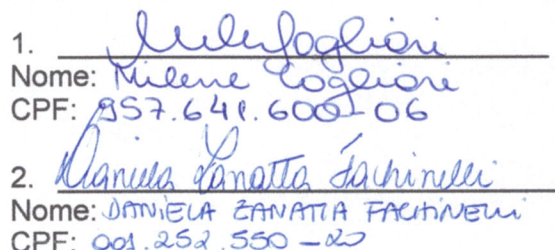 1. Milene Fogliari
Nome: Milene Fogliari
CPF: 957.641.600-06
2. Daniela Zanatta Fachinelli
Nome: DANIELA ZANATTA FACHINELLI
CPF: 001.252.550-20